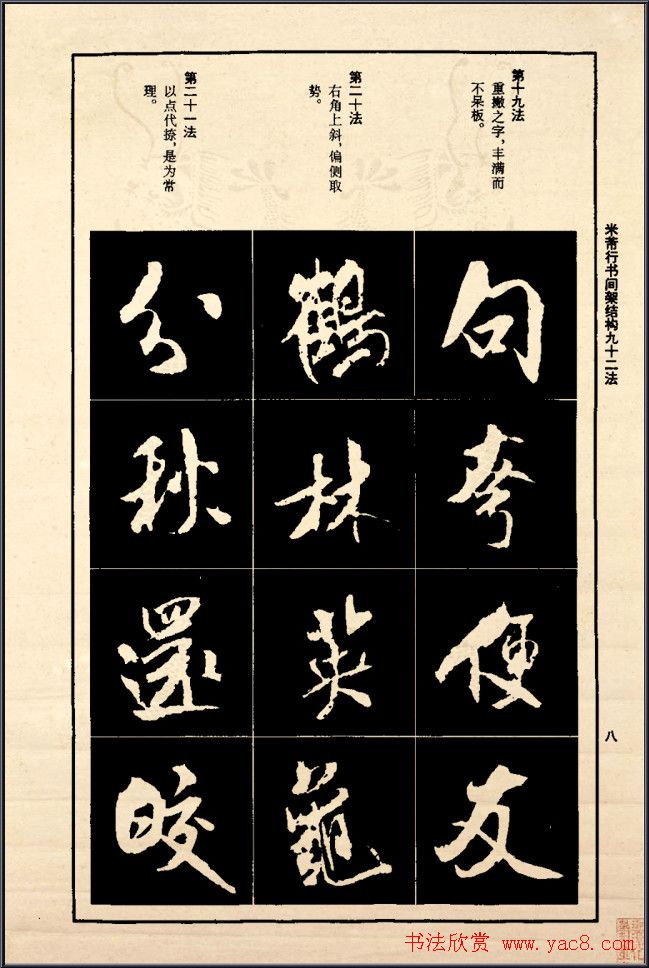 米芾行书间架结构九十二法
八
第十九法
重撇之字，丰满而
不呆板。
第二十法
右角上斜，偏侧取
势。
第二十一法
以点代捺，是为常
理。
句
夸
便
友
鹤
林
英
分
秋
还
皎
书法欣赏 www.yac8.com